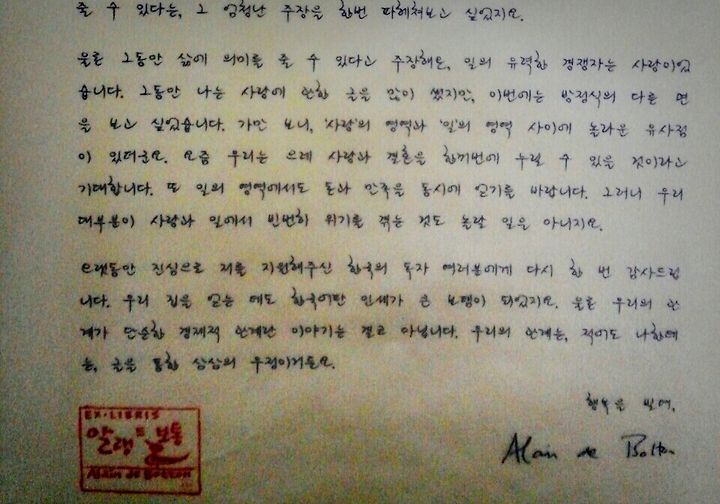 줄 수 있다는, 그 엄청난 주장을 한번 파헤쳐보고 싶었지요.
물론 그동안 삶에 의미를 줄 수 있다고 주장해온, 일의 유력한 경쟁자는 사랑이었
습니다. 그동안 나는 사랑에 관한 글을 많이 썼지만, 이번에는 방정식의 다른 면
을 보고 싶었습니다. 가만 보니, '사랑'의 영역과 '일'의 영역 사이에 놀라운 유사점
이 있더군요. 요즘 우리는 으레 사랑과 결혼을 한꺼번에 누릴 수 있을 것이라고
기대합니다. 또 일의 영역에서도 돈과 만족을 동시에 얻기를 바랍니다. 그러니 우리
대부분이 사랑과 일에서 빈번히 위기를 겪는 것도 놀랄 일은 아니지요.
오랫동안 진심으로 저를 지원해주신 한국의 독자 여러분에게 다시 한 번 감사드립
니다. 우리 집을 얻는 데도 한국어판 인세가 큰 보탬이 되었지요. 물론 우리의 관
계가 단순한 경제적 관계란 이야기는 결코 아닙니다. 우리의 관계는, 적어도 나한테
는, 글을 통한 상상의 우정이거든요.
행복을 빌며,
Alain de Botton
EX·LIBRIS
알랭 드 보통
Alain de Botton